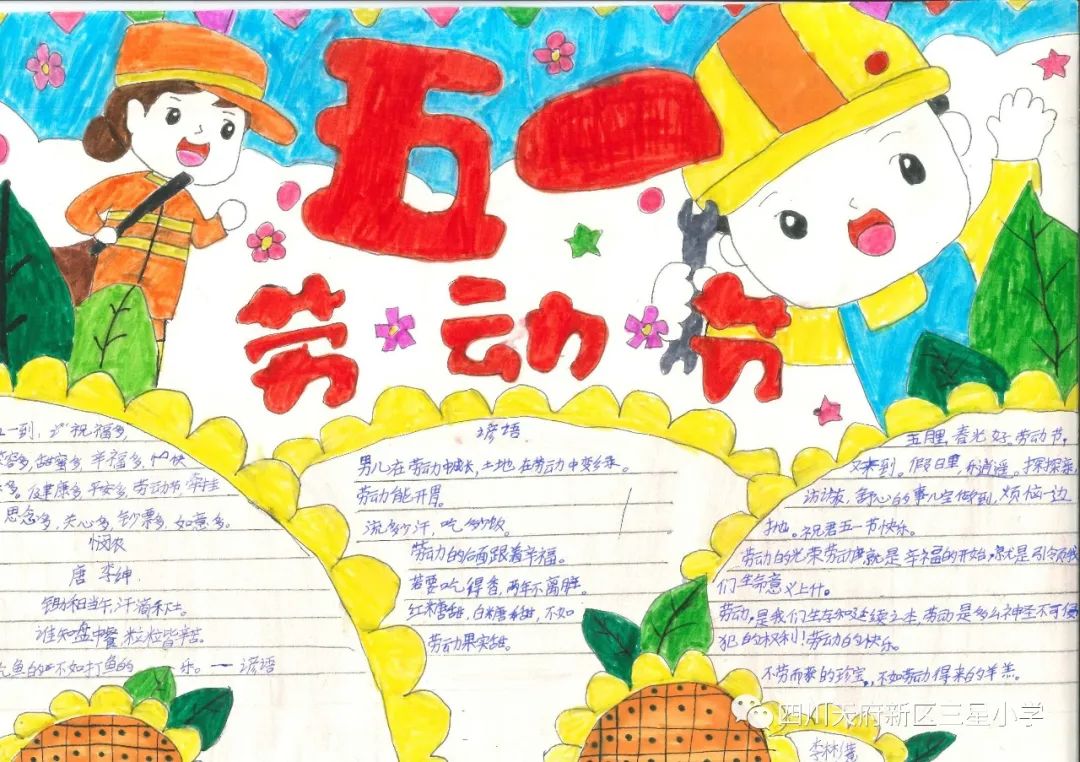 五一
劳动节
一到，送祝福多，
多，甜蜜多，幸福多，
多。健康多，平安多，劳动节，牵挂
思念多，关心多，钞票多，如意多。
悯农
唐 李绅
锄禾日当午，汗滴禾下土。
谁知盘中餐 粒粒皆辛苦。
鱼的不如打鱼的 乐。一 谚语
谚语
男儿在劳动中成长，土地在劳动中变绿。
劳动能开胃。
流多少汗，吃多少饭。
劳动的后面跟着幸福。
若要吃得香，两年不离腥。
红米糖甜，白糖甜，不如
劳动果实甜。
五月里，春光好，劳动节，
又来到。假日里，乐逍遥。探探亲，
访访友，舒心的事儿全做到，烦恼一边
抛。祝君五一节快乐。
劳动的光荣劳动就是幸福的开始，就是引领我
们生命意义上升。
劳动，是我们生存和延续之本，劳动是多么神圣不可侵
犯的权利！劳动的快乐。
不劳而获的珍宝，不如劳动得来的羊羔。
四川天府新区三星小学